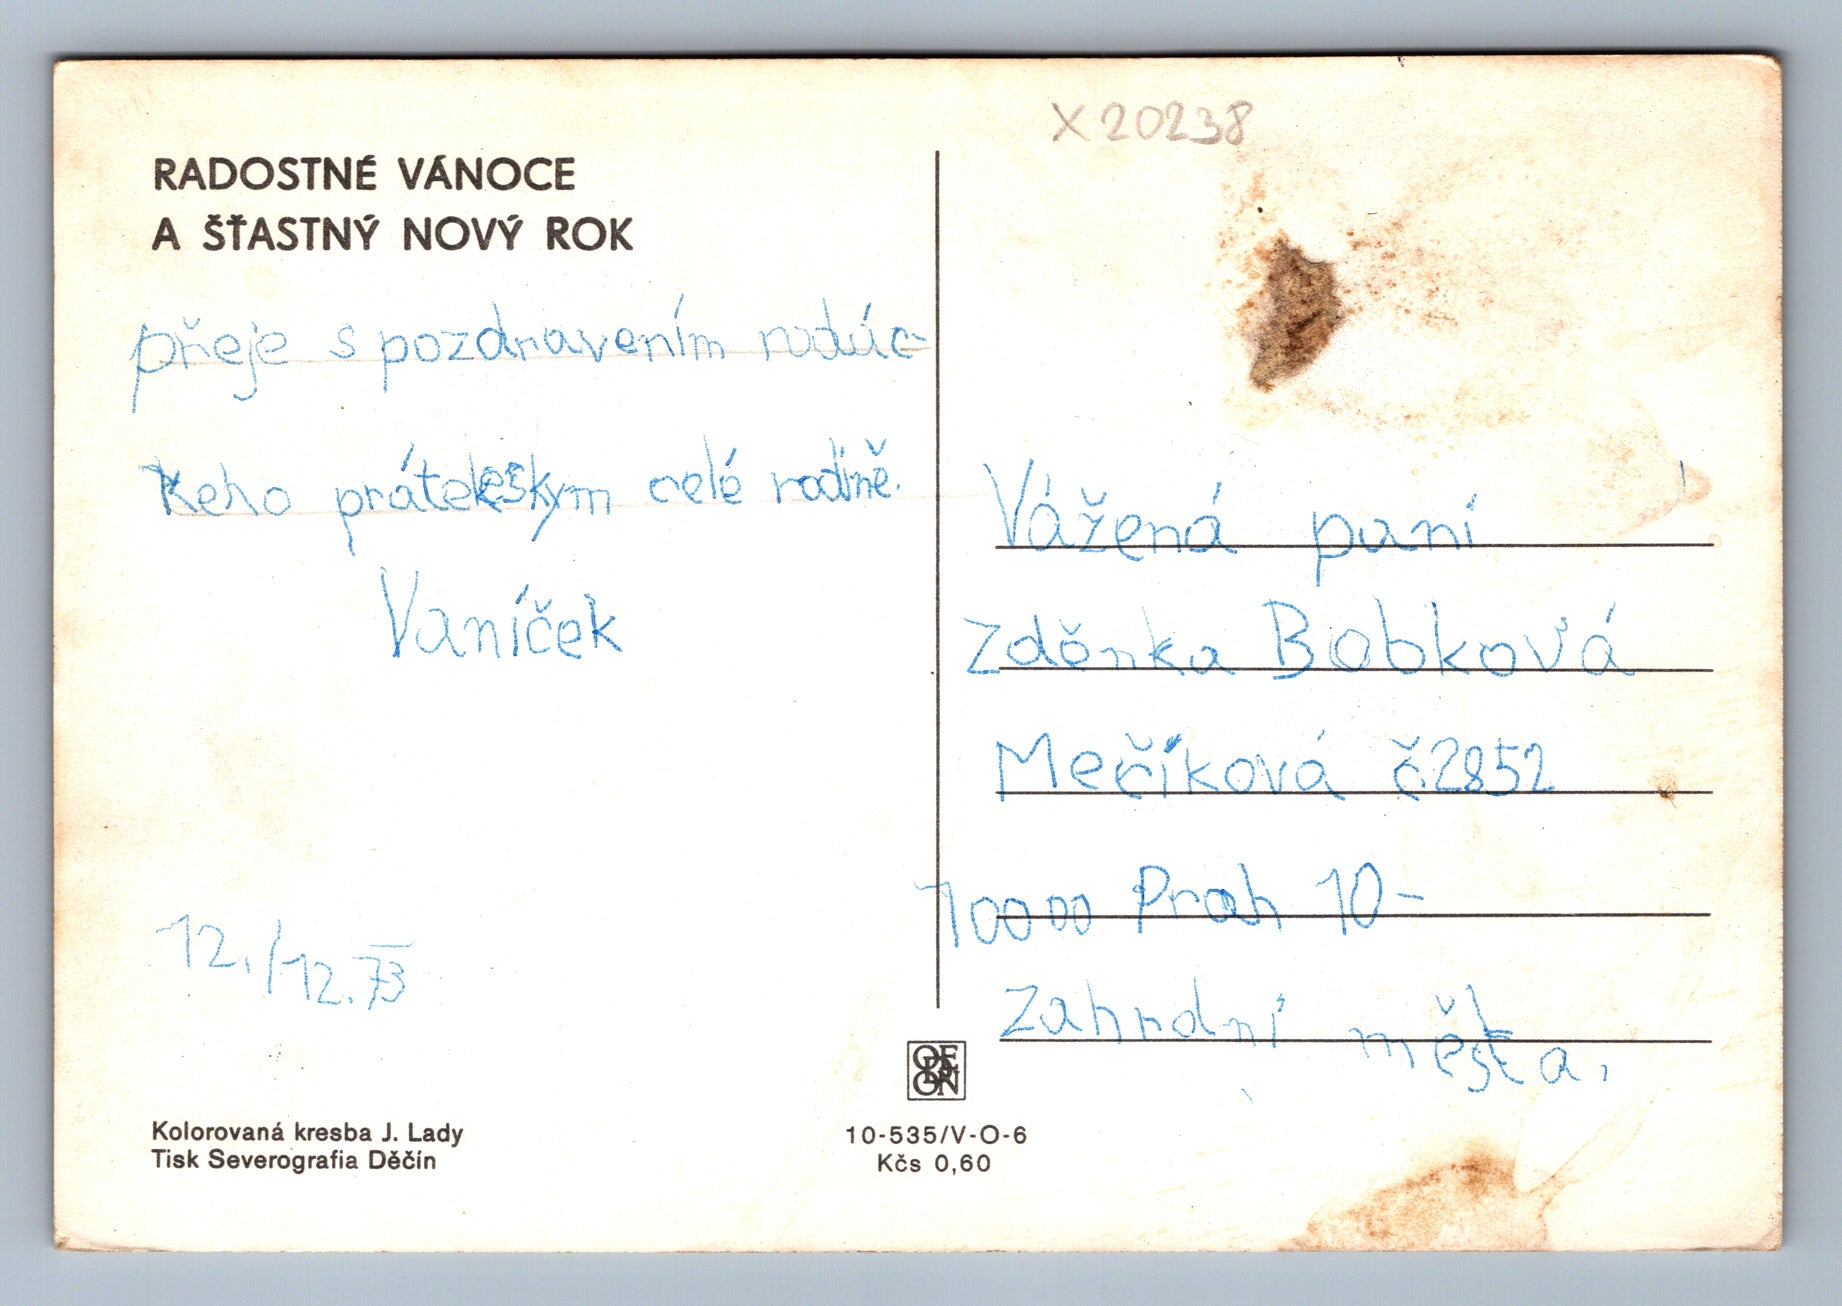 X 20238
RADOSTNÉ VÁNOCE
A ŠŤASTNÝ NOVÝ ROK
přeje s pozdravením
Keho celé rodině.
Vaníček
12./12.73
Kolorovaná kresba J. Lady
Tisk Severografia Děčín
ODEON
10-535/V-O-6
Kčs 0,60
Vážená paní
Zděnka Bobková
Mečíková č2852
10000 Prah 10-
Zahrdní města,